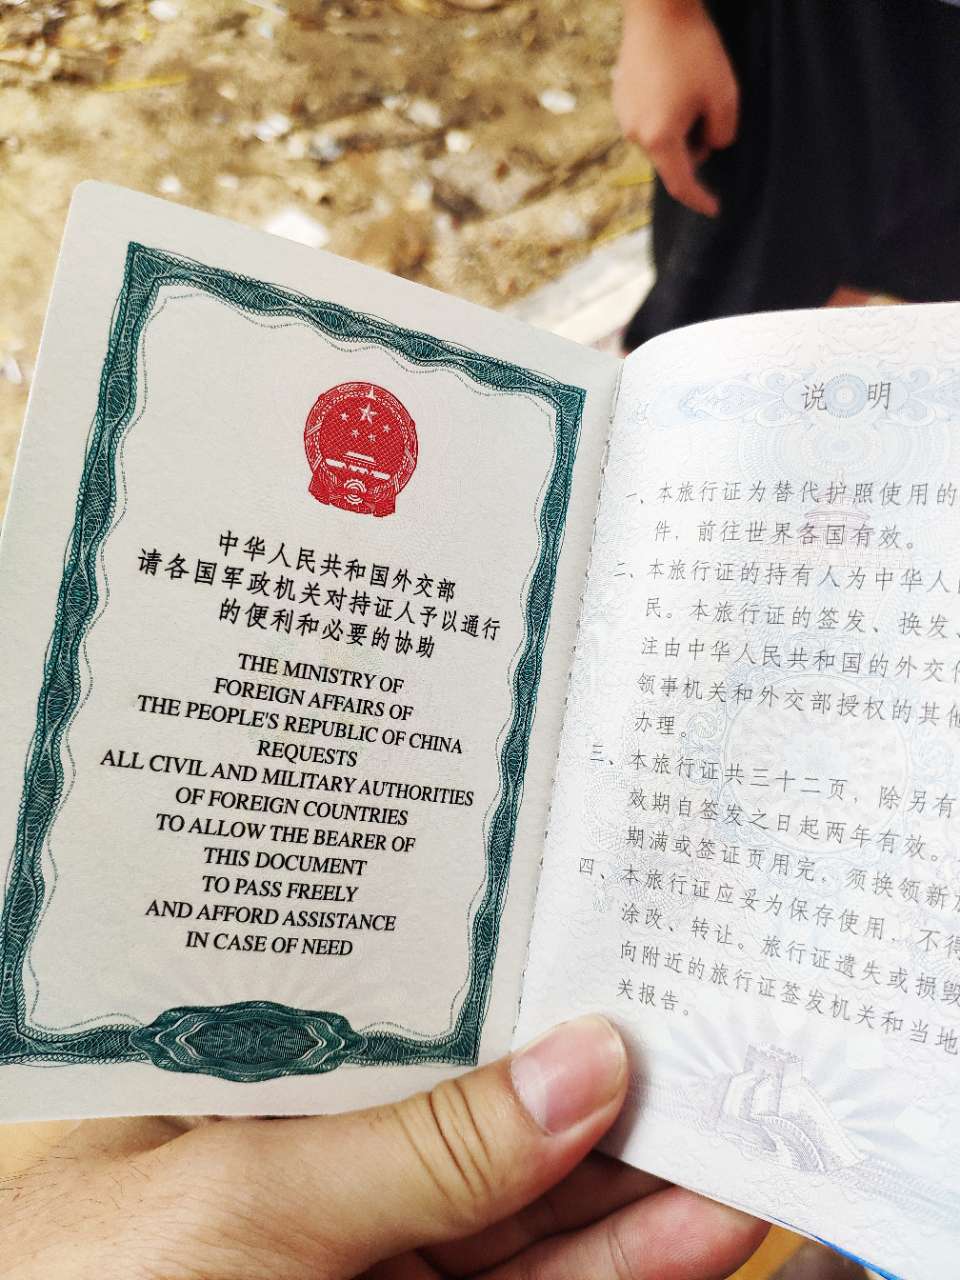 中华人民共和国外交部
请各国军政机关对持证人予以通行
的便利和必要的协助
THE MINISTRY OF
FOREIGN AFFAIRS OF
THE PEOPLE'S REPUBLIC OF CHINA
REQUESTS
ALL CIVIL AND MILITARY AUTHORITIES
OF FOREIGN COUNTRIES
TO ALLOW THE BEARER OF
THIS DOCUMENT
TO PASS FREELY
AND AFFORD ASSISTANCE
IN CASE OF NEED
说明
一、本旅行证为替代护照使用的
件，前往世界各国有效。
二、本旅行证的持有人为中华人
民。本旅行证的签发、换发、
注由中华人民共和国的外交
领事机关和外交部授权的其他
办理。
三、本旅行证共三十二页，除另有
效期自签发之日起两年有效。
期满或签证页用完，须换领新
四、本旅行证应妥为保存使用，不得
涂改、转让。旅行证遗失或损毁
向附近的旅行证签发机关和当地
关报告。